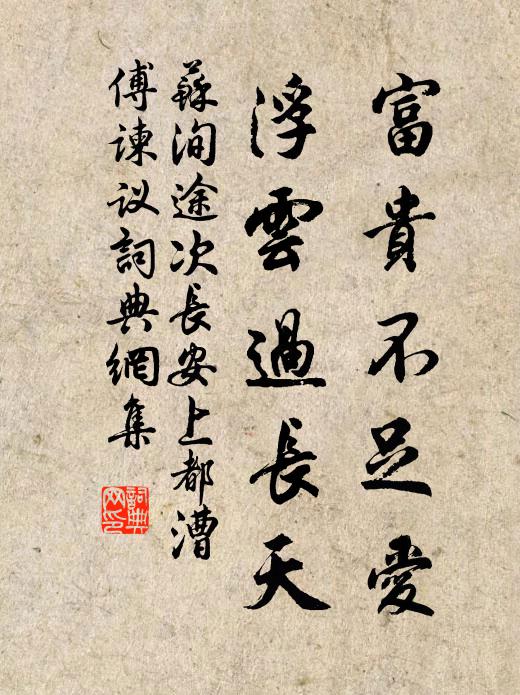 富貴不足愛
浮雲過長天
蘇洵途次長安上都漕
傅諫议詞典網集
詞典
网印